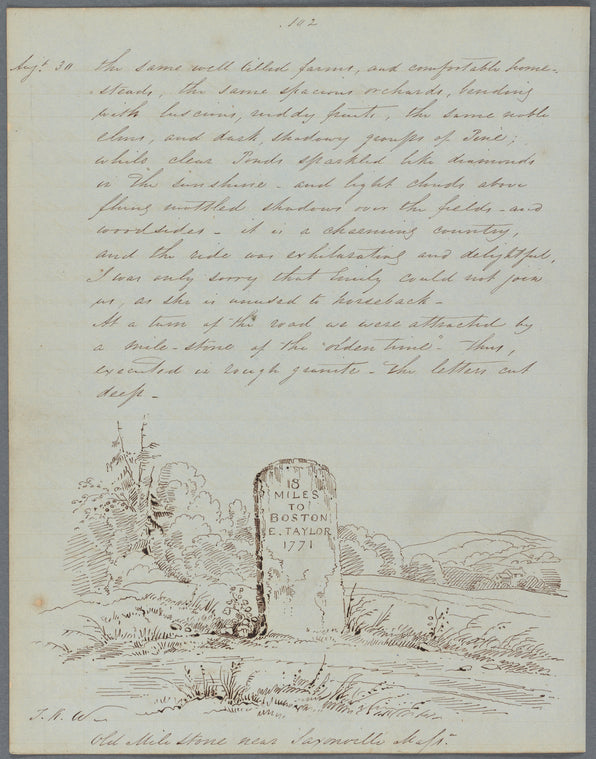 102
Augt. 30 the same well tilled farms, and comfortable home-
steads, the same spacious orchards, bending
with luscious, ruddy fruits, the same noble
elms, and dark, shadowy groups of Pine;
while clear Ponds sparkled like diamonds
in the sunshine - and light clouds above
flung mottled shadows over the fields - and
woodsides - it is a charming country,
and the ride was exhilarating and delightful,
I was only sorry that Emily could not join
us, as she is unused to horseback -
At a turn of the road we were attracted by
a mile-stone of the "olden time" - Thus,
executed in rough granite - the letters cut
deep -
18
MILES
TO
BOSTON
E. TAYLOR
1771
J. R. W-
Old Mile stone near Saxonville Mass.